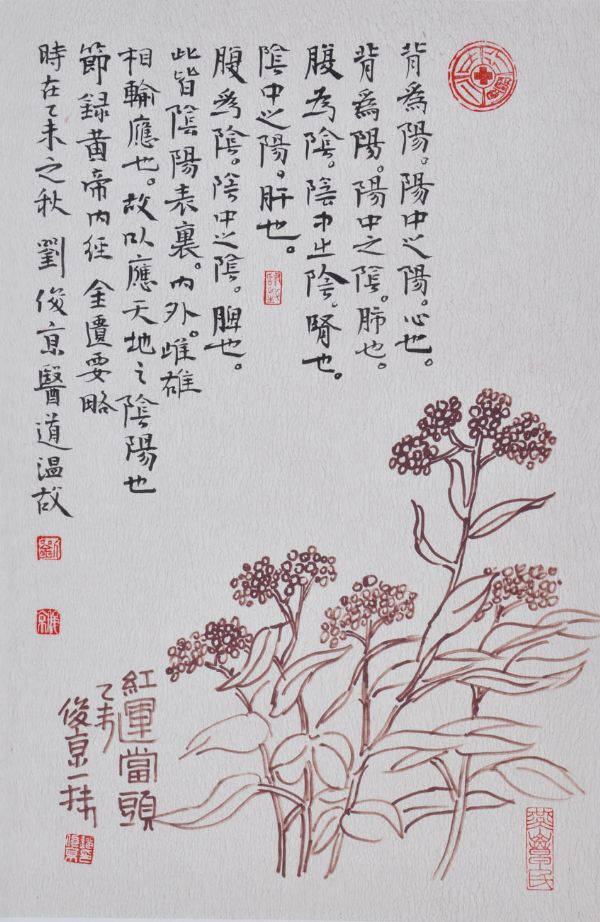 背爲陽。陽中之陽。心也。
背爲陽。陽中之陰。肺也。
腹為陰。陰中之陰。腎也。
陰中之陽。肝也。
腹爲陰。陰中之陰。脾也。
此皆陰陽表裏。内外。雌雄
相輸應也。故以應天地之陰陽也
節録黄帝内经 金匱要略
時在乙未之秋 劉俊京醫道温故
紅運當頭
乙未
俊京一抹